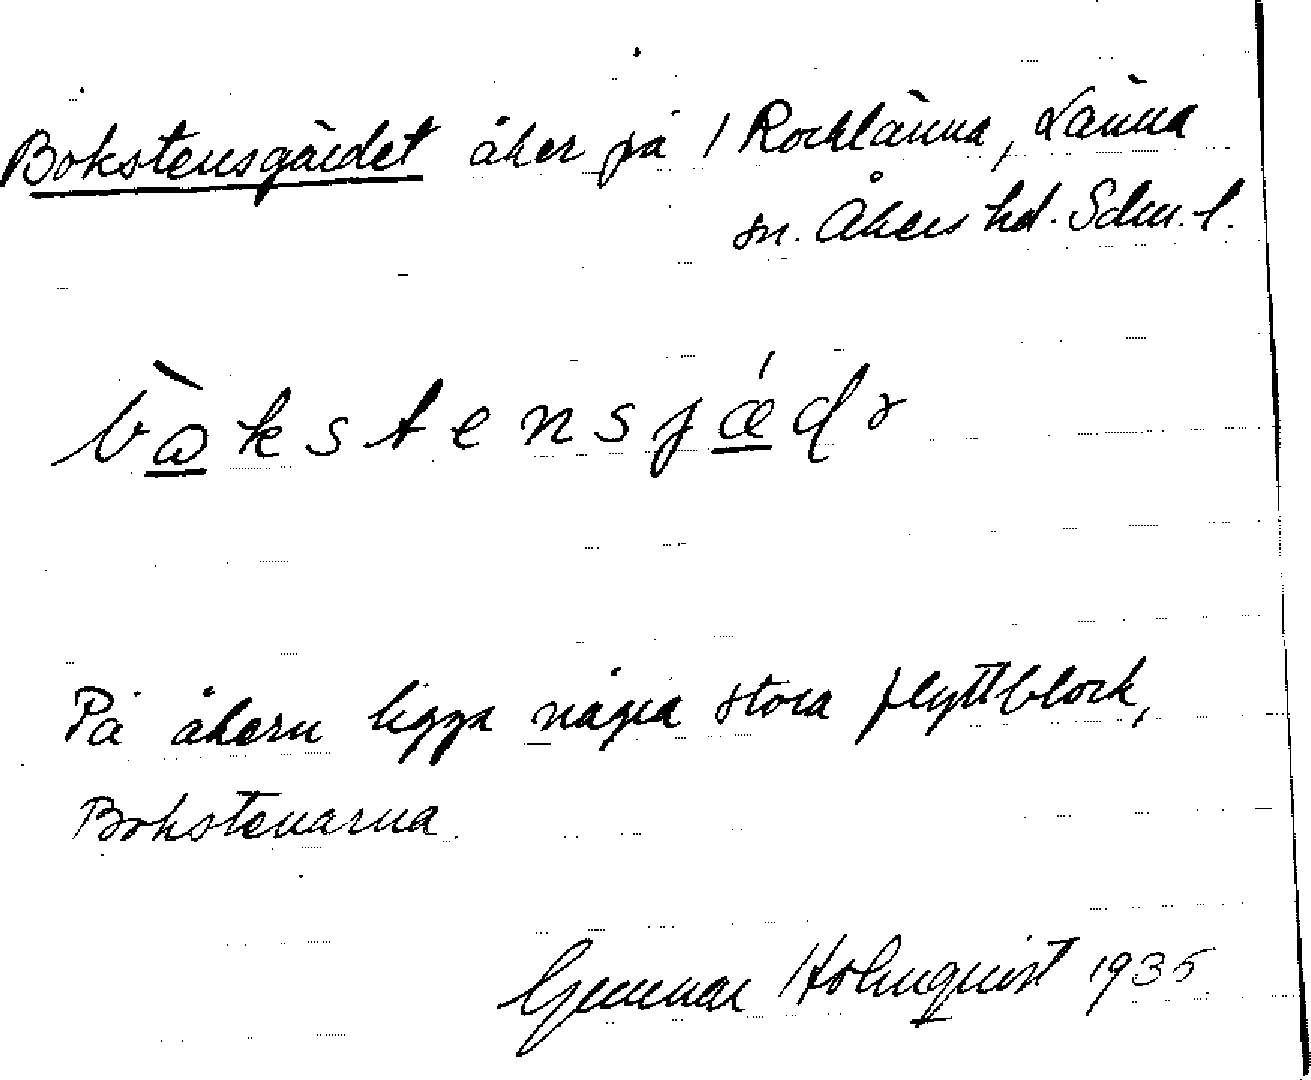 Bokstensgärdet åker på 1 Rocklänna, Länna
sn. Åkers hd. Sdm. l.
På åkern ligga några stora flyttblock,
Bokstenarna.
Gunnar Holmquist 1935